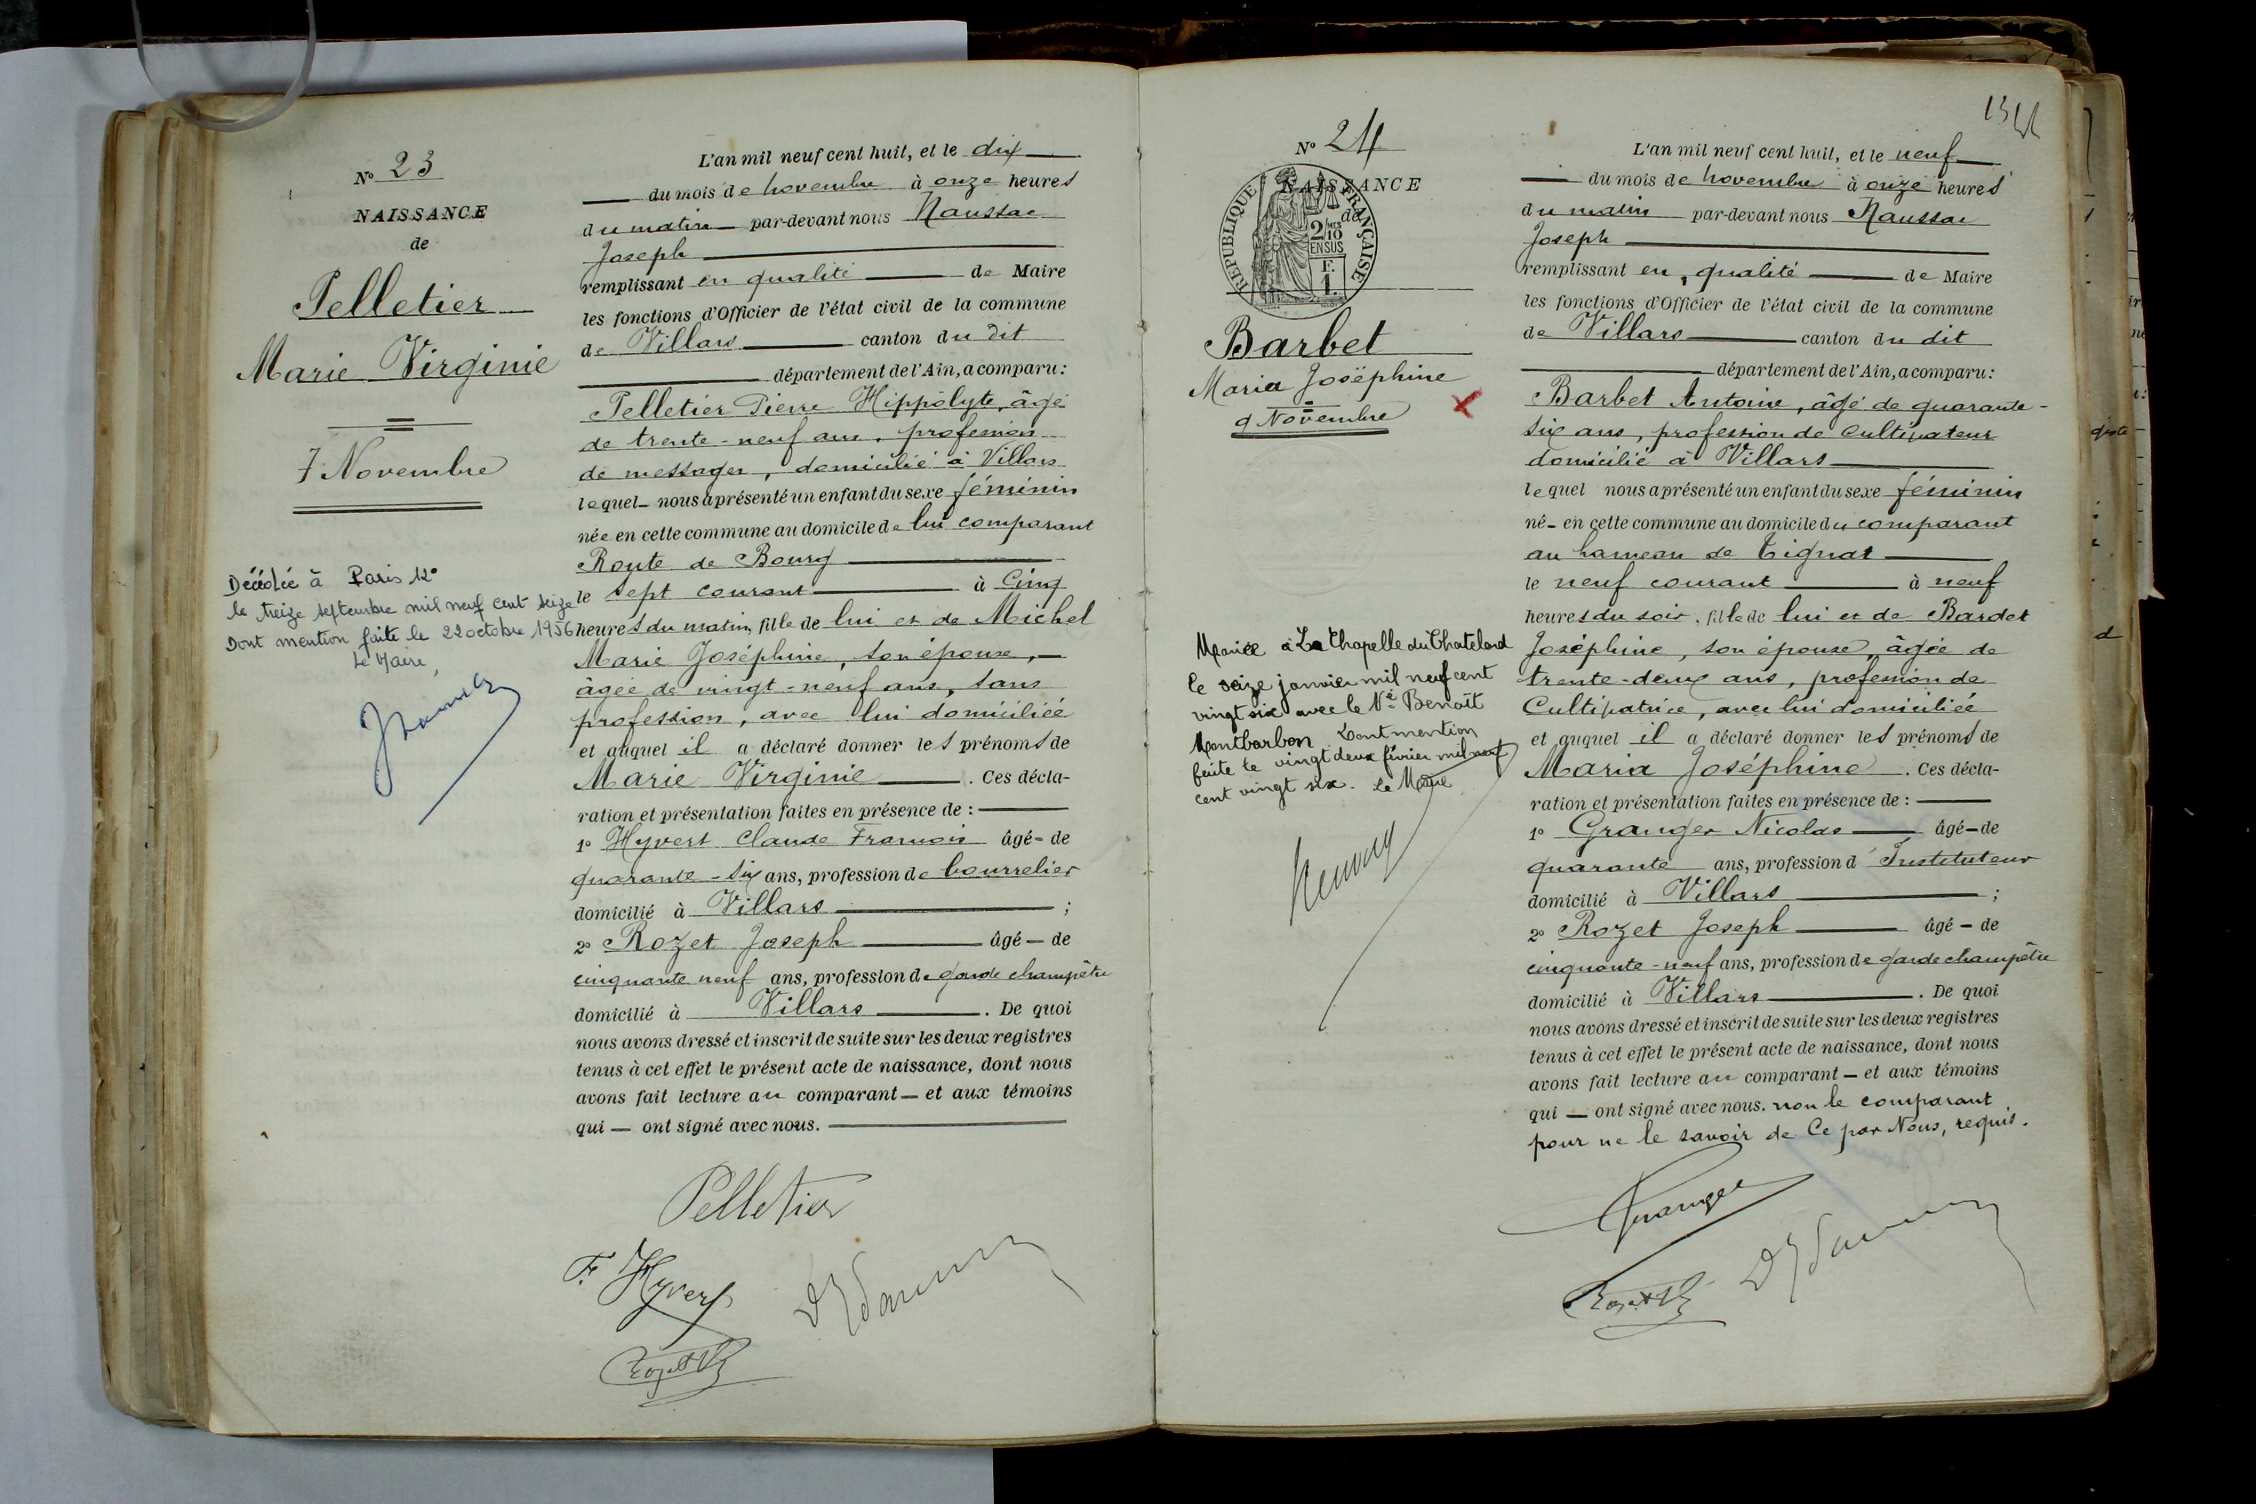 N° 23
NAISSANCE
de
Pelletier
Marie Virginie
7 Novembre
Décédée à Paris 12°
le treize septembre mil neuf cent seize
Dont mention faite le 22 octobre 1956
Le Maire,
L'an mil neuf cent huit, et le dix
du mois de novembre à onze heures
du matin par-devant nous Naussac
Joseph
remplissant en qualité de Maire
les fonctions d'Officier de l'état civil de la commune
de Villars canton du dit
département de l'Ain, a comparu :
Pelletier Pierre Hippolyte, âgé
de trente-neuf ans, profession
de messager, domicilié à Villars
lequel nous a présenté un enfant du sexe féminin
née en cette commune au domicile de lui comparant
Route de Bourg
le sept courant à Cinq
heures du matin, fille de lui et de Michel
Marie Joséphine, son épouse,
âgée de vingt-neuf ans, sans
profession, avec lui domiciliée
et auquel il a déclaré donner les prénoms de
Marie Virginie. Ces décla-
ration et présentation faites en présence de :
1° Hyvert Claude François âgé de
quarante-six ans, profession de bourrelier
domicilié à Villars ;
2° Rozet Joseph âgé de
cinquante neuf ans, profession de garde champêtre
domicilié à Villars. De quoi
nous avons dressé et inscrit de suite sur les deux registres
tenus à cet effet le présent acte de naissance, dont nous
avons fait lecture au comparant et aux témoins
qui ont signé avec nous.
Pelletier
F. Hyvert
Rozet
134
N° 24
NAISSANCE
de
REPUBLIQUE FRANÇAISE
2/10
EN SUS
F.
1.
Barbet
Maria Joséphine
9 Novembre
Mariée à La Chapelle du Chatelard
le seize janvier mil neuf cent
vingt six avec le Né Benoît
Montbarbon Dont mention
faite le vingt deux février mil neuf
cent vingt six. Le Maire
L'an mil neuf cent huit, et le neuf
du mois de novembre à onze heures
du matin par-devant nous Naussac
Joseph
remplissant en qualité de Maire
les fonctions d'Officier de l'état civil de la commune
de Villars canton du dit
département de l'Ain, a comparu :
Barbet Antoine, âgé de quarante-
six ans, profession de Cultivateur
domicilié à Villars
lequel nous a présenté un enfant du sexe féminin
né en cette commune au domicile du comparant
au hameau de Tignat
le neuf courant à neuf
heures du soir, fille de lui et de Bardet
Joséphine, son épouse, âgée de
trente-deux ans, profession de
Cultivatrice, avec lui domiciliée
et auquel il a déclaré donner les prénoms de
Maria Joséphine. Ces décla-
ration et présentation faites en présence de :
1° Granger Nicolas âgé de
quarante ans, profession d'Instituteur
domicilié à Villars ;
2° Rozet Joseph âgé de
cinquante-neuf ans, profession de garde champêtre
domicilié à Villars. De quoi
nous avons dressé et inscrit de suite sur les deux registres
tenus à cet effet le présent acte de naissance, dont nous
avons fait lecture au comparant et aux témoins
qui ont signé avec nous. non le comparant
pour ne le savoir de Ce par Nous, requis.
Granger
Rozet